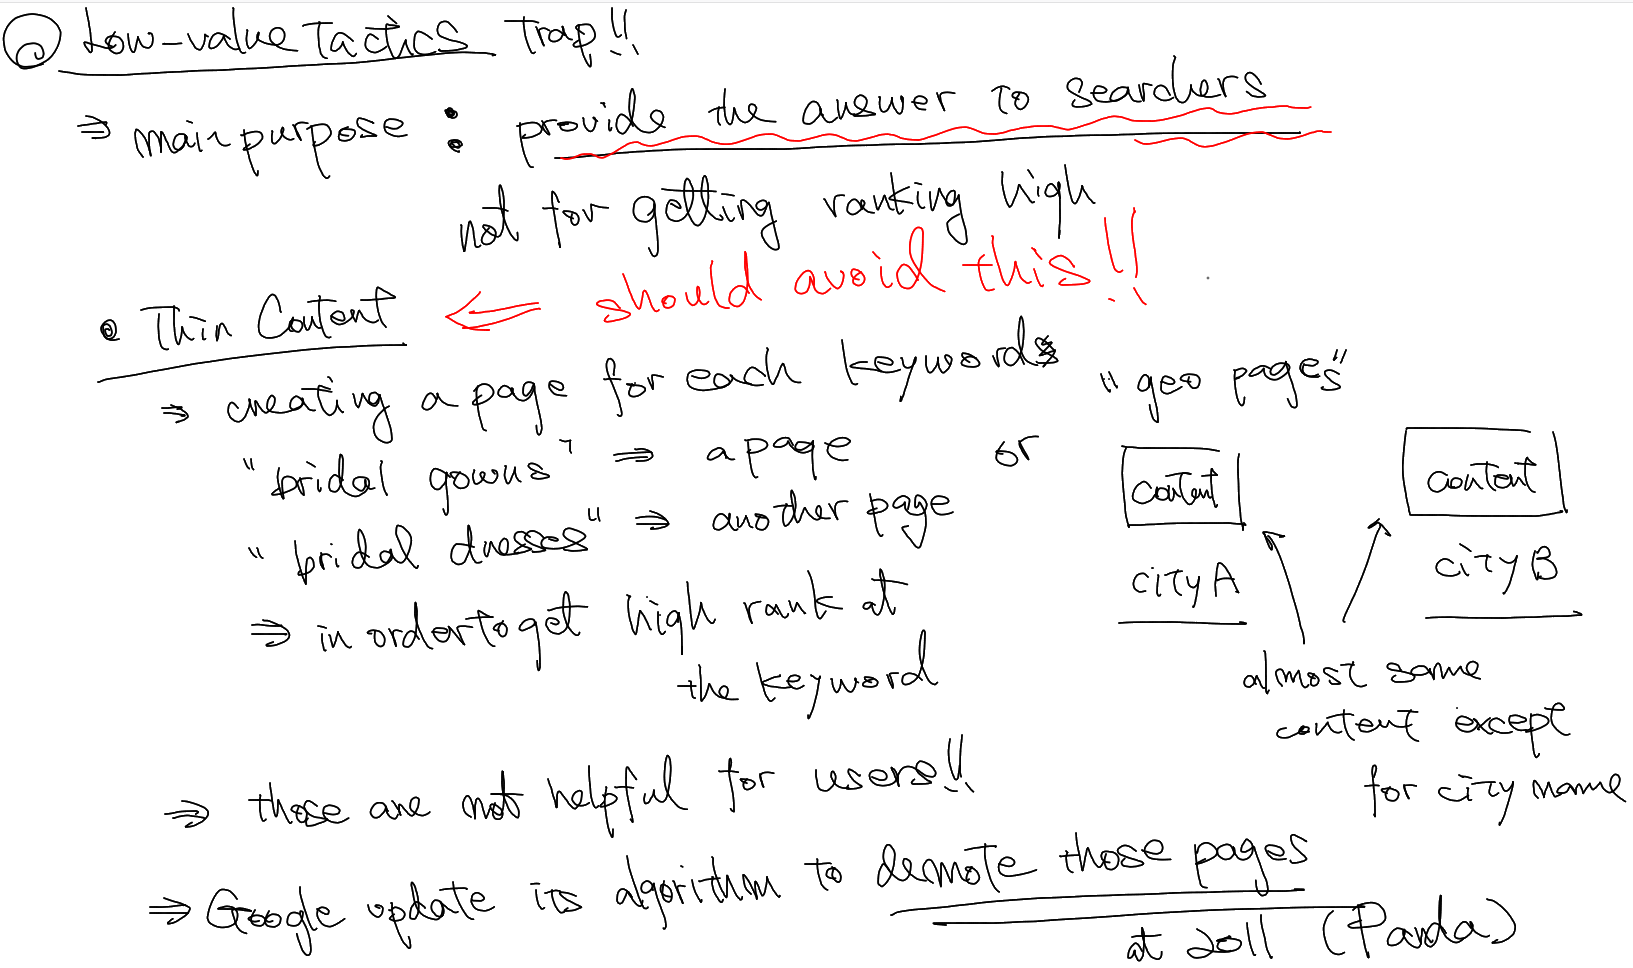 Low-value Tactics Trap!!
⇒ main purpose : provide the answer to searchers
not for getting ranking high
• Thin Content ⇐ should avoid this!!
⇒ creating a page for each keywords
"bridal gowns" ⇒ a page
"bridal dresses" ⇒ another page
⇒ in order to get high rank at
the keyword
or
"geo pages"
content
city A
content
city B
almost same
content except
for city name
⇒ those are not helpful for users!!
⇒ Google update its algorithm to demote those pages
at 2011 (Panda)